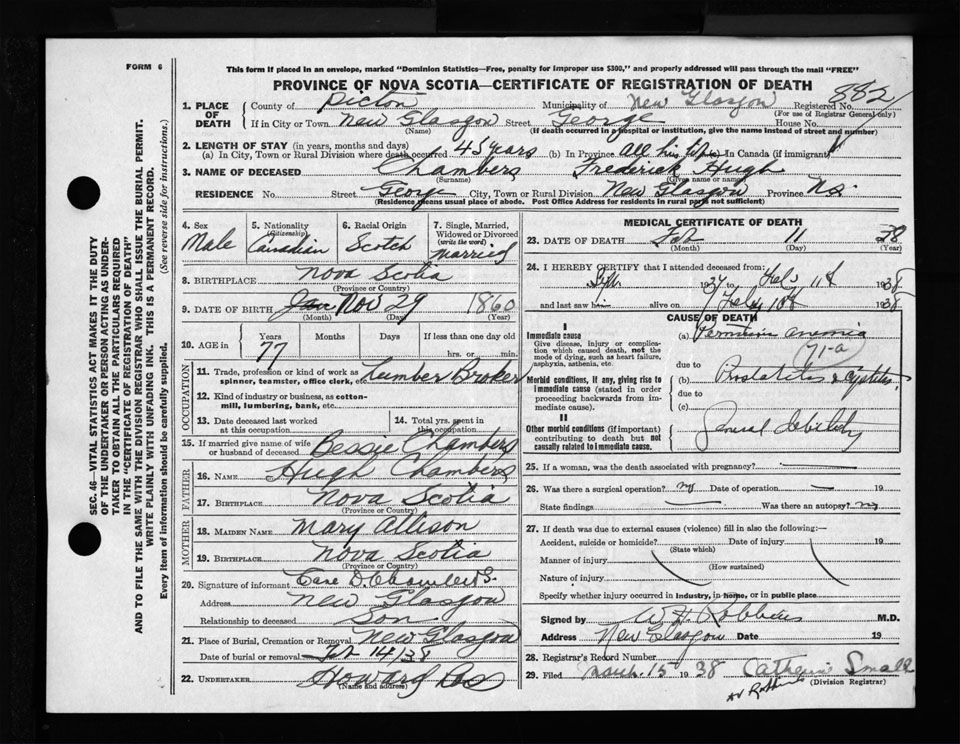 FORM 6
This form if placed in an envelope, marked "Dominion Statistics—Free, penalty for improper use $300," and properly addressed will pass through the mail "FREE"
PROVINCE OF NOVA SCOTIA—CERTIFICATE OF REGISTRATION OF DEATH
882
1. PLACE OF DEATH County of Pictou Municipality of New Glasgow Registered No.
(For use of Registrar General only)
If in City or Town New Glasgow Street George House No.
(Name) (If death occurred in a hospital or institution, give the name instead of street and number)
2. LENGTH OF STAY (in years, months and days)
(a) In City, Town or Rural Division where death occurred 45 years (b) In Province all his life (c) In Canada (if immigrant)
3. NAME OF DECEASED Chambers Frederick Hugh
(Surname) (Given name or names)
RESIDENCE No. Street George City, Town or Rural Division New Glasgow Province N.S.
(Residence means usual place of abode. Post Office Address for residents in rural parts not sufficient)
4. Sex Male
5. Nationality (Citizenship) Canadian
6. Racial Origin Scotch
7. Single, Married, Widowed or Divorced (write the word) Married
8. BIRTHPLACE Nova Scotia
(Province or Country)
9. DATE OF BIRTH Jan Nov 29 1860
(Month) (Day) (Year)
10. AGE in Years Months Days If less than one day old
77 hrs. or min.
OCCUPATION
11. Trade, profession or kind of work as spinner, teamster, office clerk, etc. Lumber Broker
12. Kind of industry or business, as cotton-mill, lumbering, bank, etc.
13. Date deceased last worked at this occupation
14. Total yrs. spent in this occupation
15. If married give name of wife or husband of deceased Bessie Chambers
FATHER
16. NAME Hugh Chambers
17. BIRTHPLACE Nova Scotia
(Province or Country)
MOTHER
18. MAIDEN NAME Mary Allison
19. BIRTHPLACE Nova Scotia
(Province or Country)
20. Signature of informant D. Chambers
Address New Glasgow
Relationship to deceased Son
21. Place of Burial, Cremation or Removal New Glasgow
Date of burial or removal Feb 14/38
22. UNDERTAKER Howard
(Name and address)
MEDICAL CERTIFICATE OF DEATH
23. DATE OF DEATH Feb 11 38
(Month) (Day) (Year)
24. I HEREBY CERTIFY that I attended deceased from:
Sept 1937 to Feb 11th 1938
and last saw him alive on Feby 10th 1938
CAUSE OF DEATH
I
Immediate cause
Give disease, injury or complication which caused death, not the mode of dying, such as heart failure, asphyxia, asthenia, etc.
(a) Pernicious anemia
71-a
due to
Morbid conditions, if any, giving rise to immediate cause (stated in order proceeding backwards from immediate cause).
(b) Prostatitis & Cystitis
due to
(c)
II
Other morbid conditions (if important) contributing to death but not causally related to immediate cause.
General debility
25. If a woman, was the death associated with pregnancy?
26. Was there a surgical operation? no Date of operation 19
State findings Was there an autopsy? no
27. If death was due to external causes (violence) fill in also the following:—
Accident, suicide or homicide? Date of injury 19
(State which)
Manner of injury
(How sustained)
Nature of injury
Specify whether injury occurred in industry, in home, or in public place
Signed by M.D.
Address New Glasgow Date 19
28. Registrar's Record Number
29. Filed March 15 1938 Catherine Small
(Division Registrar)
SEC. 46—VITAL STATISTICS ACT MAKES IT THE DUTY
OF THE UNDERTAKER OR PERSON ACTING AS UNDER-
TAKER TO OBTAIN ALL THE PARTICULARS REQUIRED
IN THE "CERTIFICATE OF REGISTRATION OF DEATH"
AND TO FILE THE SAME WITH THE DIVISION REGISTRAR WHO SHALL ISSUE THE BURIAL PERMIT.
WRITE PLAINLY WITH UNFADING INK. THIS IS A PERMANENT RECORD.
Every item of information should be carefully supplied. (See reverse side for instructions.)